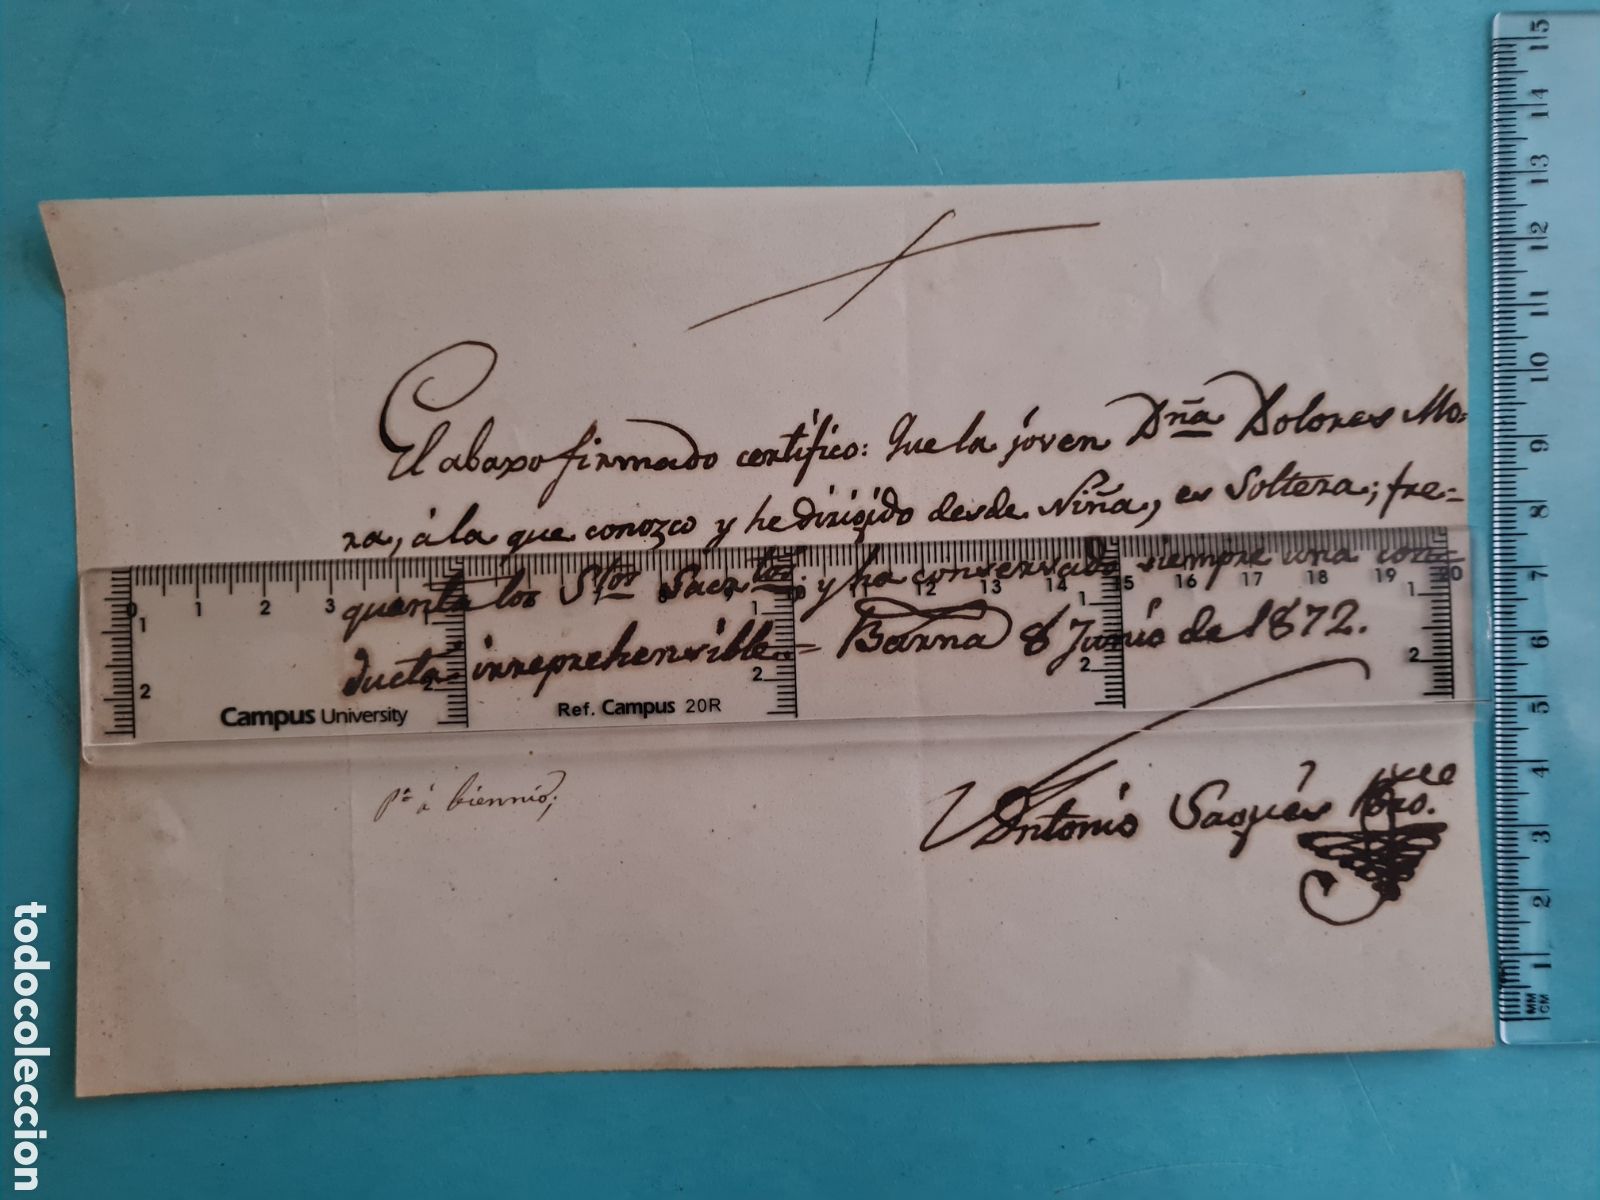 El abaxo firmado certifico: Que la jóven Dña Dolores Mo=
ra, á la que conozco y he dirigido desde Niña, es Soltera; fre=
quenta los Stos Sacrtos. y ha conservado siempre una con=
ducta irreprehensible.= Barna 8 Junio de 1872.
Antonio Saqués Pbro.
pa á biennio;
0 1 2 3 11 12 13 14 15 16 17 18 19 20
1 1 1 1
2 2 2 2 2
Campus University
Ref. Campus 20R
15
14
13
12
11
10
9
8
7
6
5
4
3
2
1
MM
CM
todocoleccion